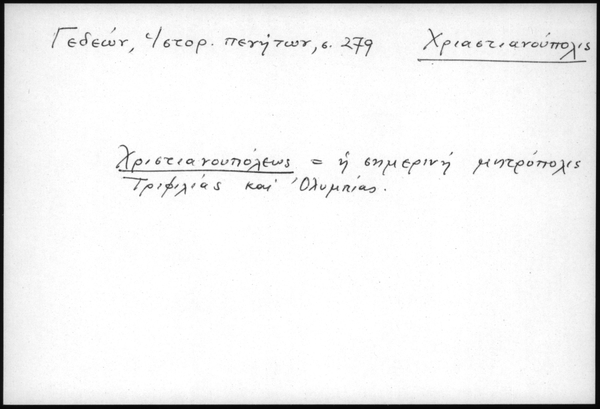 Γεδεών, Ἱστορ. πενήτων, σ. 279 Χριαστιανούπολις
Χριστιανουπόλεως = ἡ σημερινή μητρόπολις
Τριφυλίας καί Ὀλυμπίας.